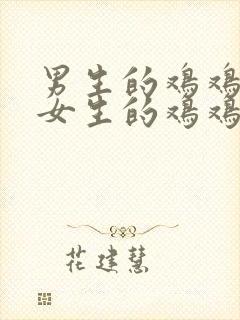 男生的鸡鸡
女生的鸡鸡
花建慧